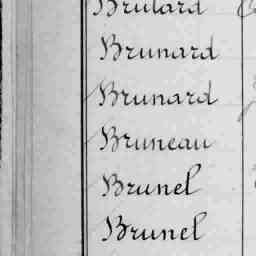 Brulard
Brunard
Brunard
Bruneau
Brunel
Brunel